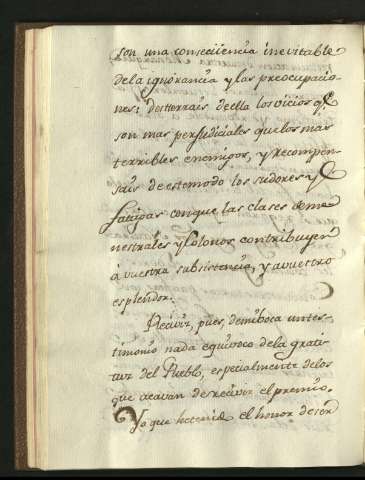 son una conseqüencia inevitable
dela ignorancia y las preocupacio-
nes: desterrais deella los vicios qͤ
son mas perjudiciales quelos mas
terribles enemigos, y recompen-
sais de estemodo los sudores y
fatigas conque las clases deme-
nestrales y Colonos contribuyen
á vuestra subsistencia, y avuestro
esplendor.
Recivir, pues, demiboca untes-
timonio nada equivoco dela grati-
tuz del Pueblo, especialmente delos
que acavan de recivir el premio.
Yo que hetenido el honor deser